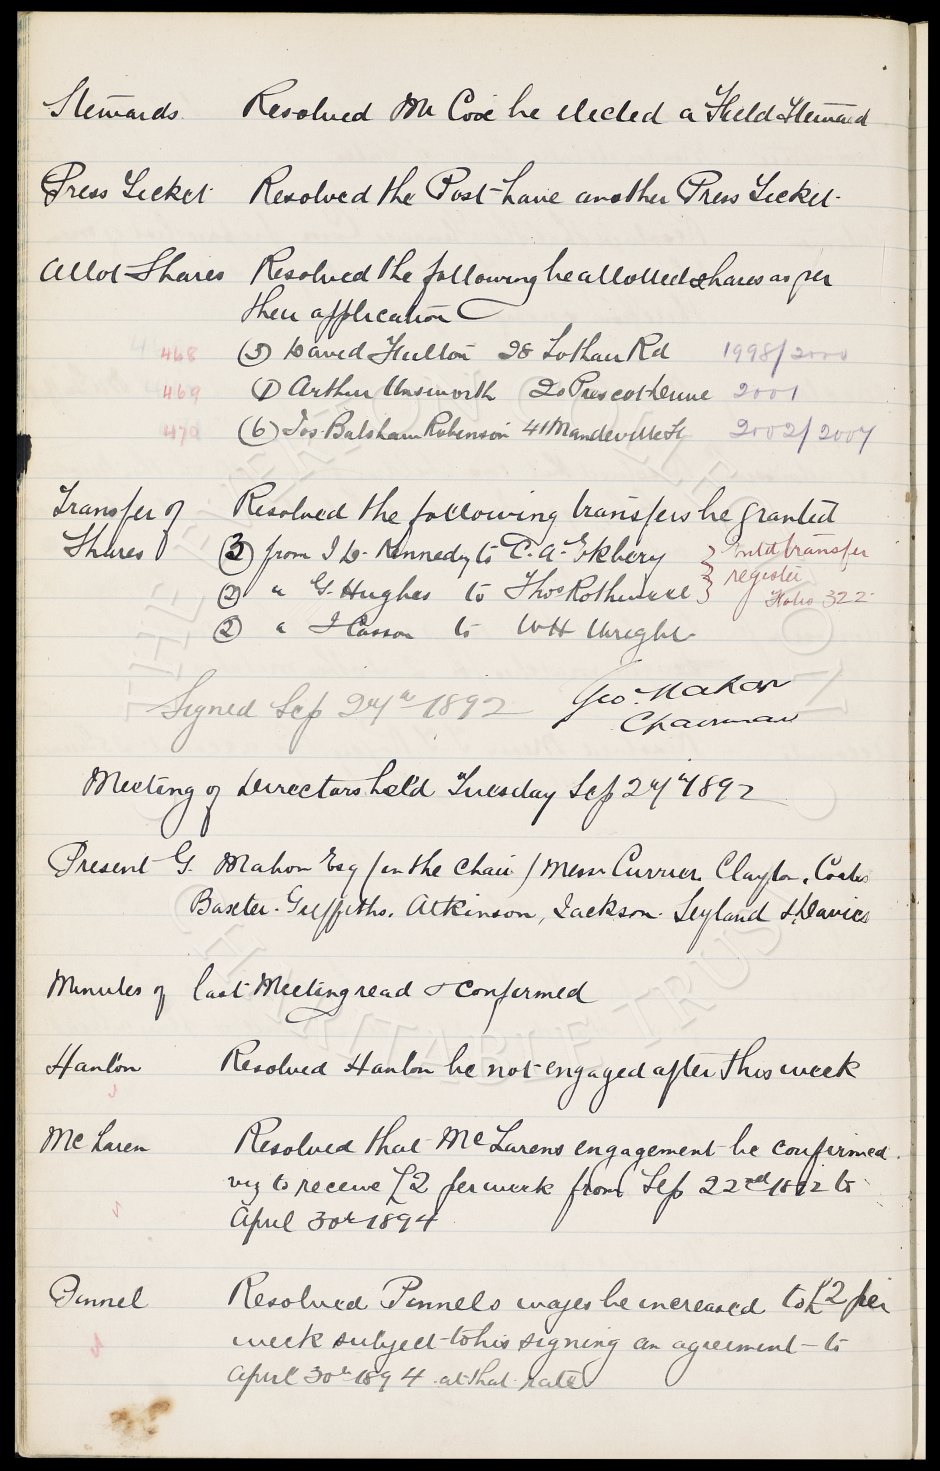 Stewards Resolved Mr Coxe be elected a Field Steward
Press Ticket Resolved the Post have another Press Ticket.
Allot Shares Resolved the following be allotted shares as per
their application
468 (3) David Fulton 28 Lothair Rd 1998/2000
469 (1) Arthur Unsworth 20 Prescot Drive 2001
470 (6) Jos. Balsham Robinson 41 Mandeville St 2002/2007
Transfer of Resolved the following transfers be granted
Shares (3) from J D. Kennedy to C. A. Ekbery } Entd transfer
(2) " G. Hughes to Thos Rothwell } register
Folio 322
(2) " J Casson to W H Wright.
Signed Sep 27th 1892 Geo. Mahon
Chairman
Meeting of Directors held Tuesday Sep 27th 1892
Present G. Mahon Esq (in the Chair) Messrs Currier, Clayton, Coates
Baxter. Griffiths. Atkinson, Jackson. Leyland & Davies
Minutes of last Meeting read & confirmed
Hanlon Resolved Hanlon be not engaged after this week
McLaren Resolved that McLarens engagement be confirmed.
viz to receive £2 per week from Sep 22nd 1892 to
April 30th 1894
Pinnel Resolved Pinnels wages be increased to £2 per
week subject to his signing an agreement to
April 30th 1894 at that rate